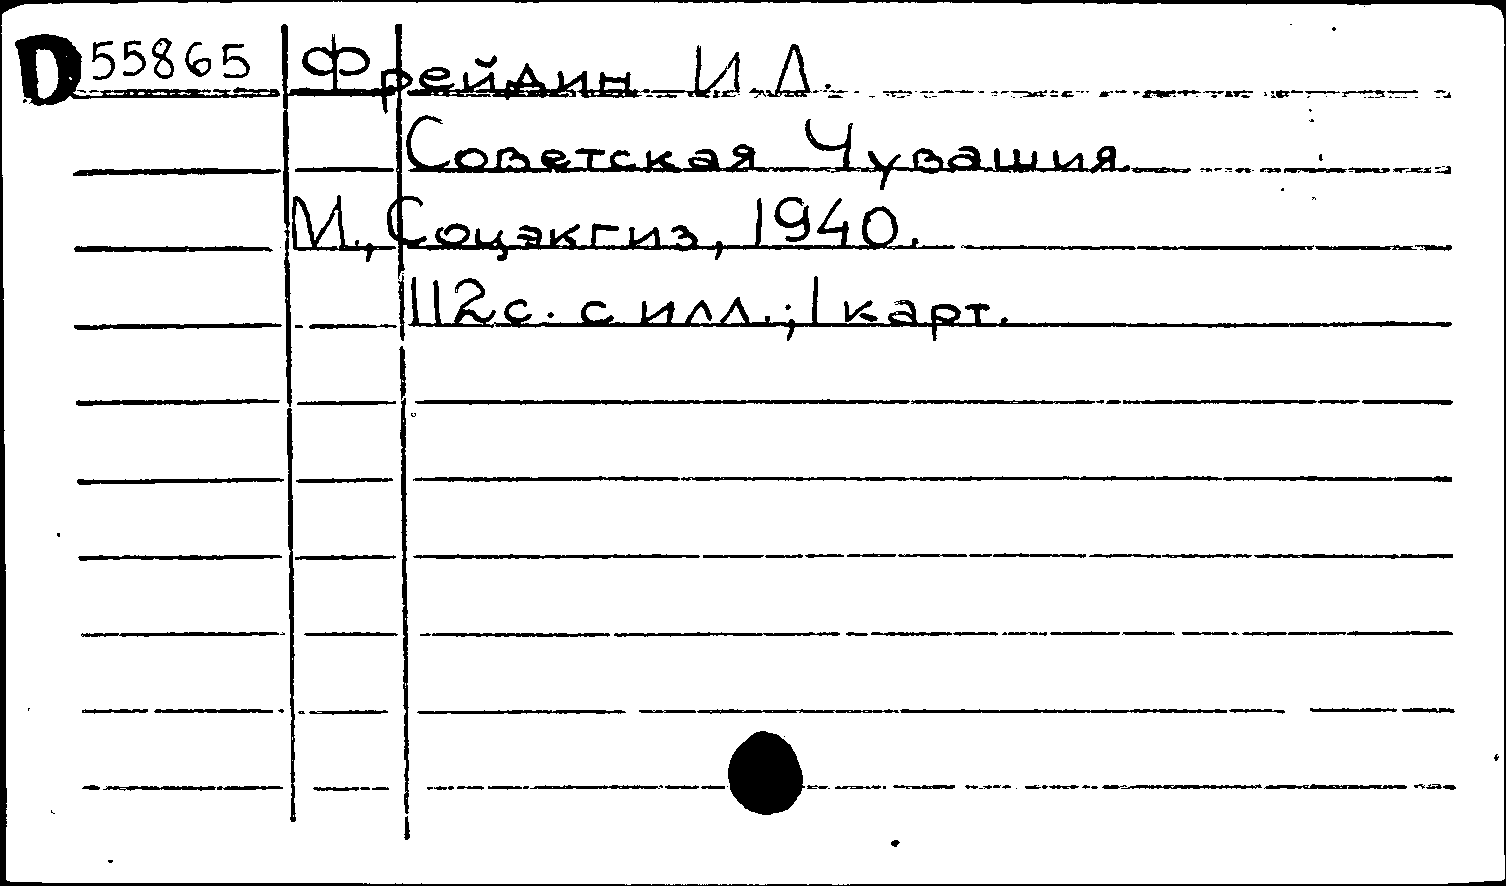 D 55865 Фрейдин И.Л.
Советская Чувашия
М., Соцэкгиз, 1940.
112с. с илл.; 1 карт.